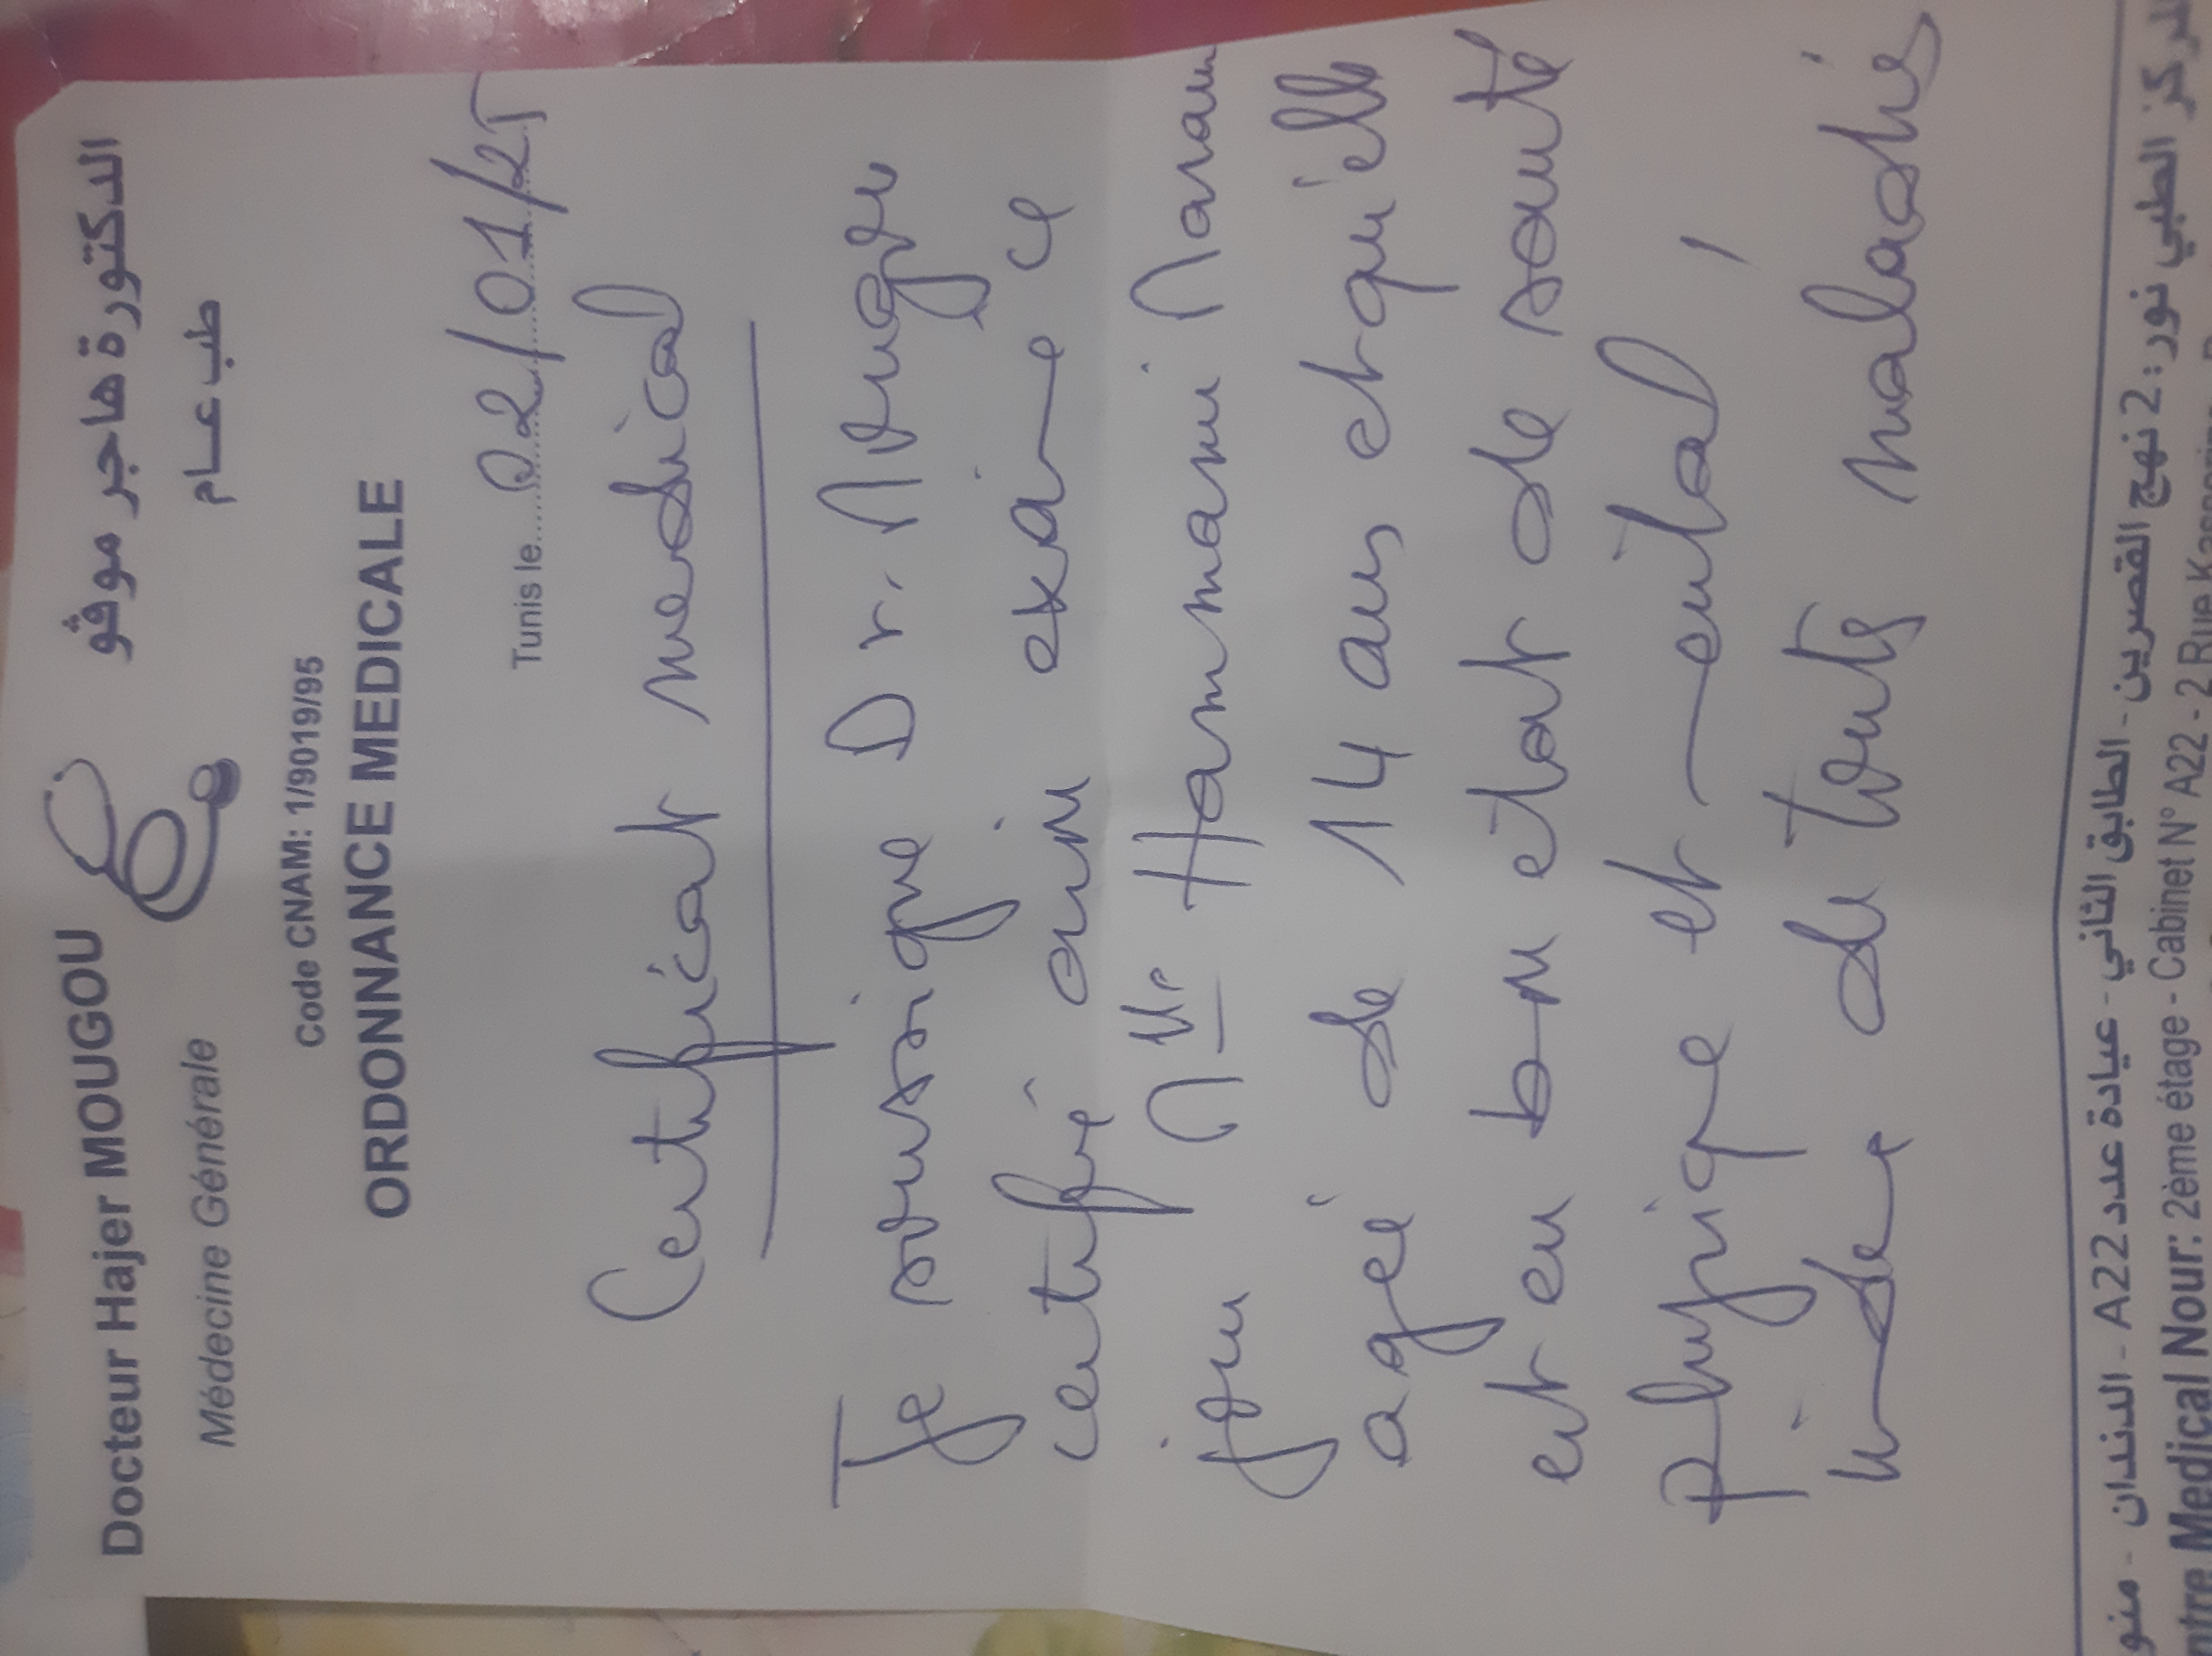 Docteur Hajer MOUGOU
الدكتورة هاجر موقو
Médecine Générale
طب عام
Code CNAM: 1/9019/95
ORDONNANCE MEDICALE
Tunis le......02/01/25
Certificat medical
Je soussigne Dr. Mougou
certifié avoir examine ce
jour Mlle Hammami Maram
agée de 14 ans et qu'elle
est en bon etat de santé
physique et mental,
indemne de touts maladies
المركز الطبي نور: 2 نهج القصرين - الطابق الثاني - عيادة عدد A22 - الدندان - منو
ntre Medical Nour: 2ème étage - Cabinet N° A22 - 2 Rue Kasserine